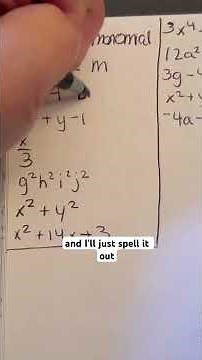 nomial
m
+ y - 1
x/3
g²h²i²j²
x² + y²
x² + 14x + 3
3x⁴
12a²
3g - 4
x² +
-4a -
and I'll just spell it
out